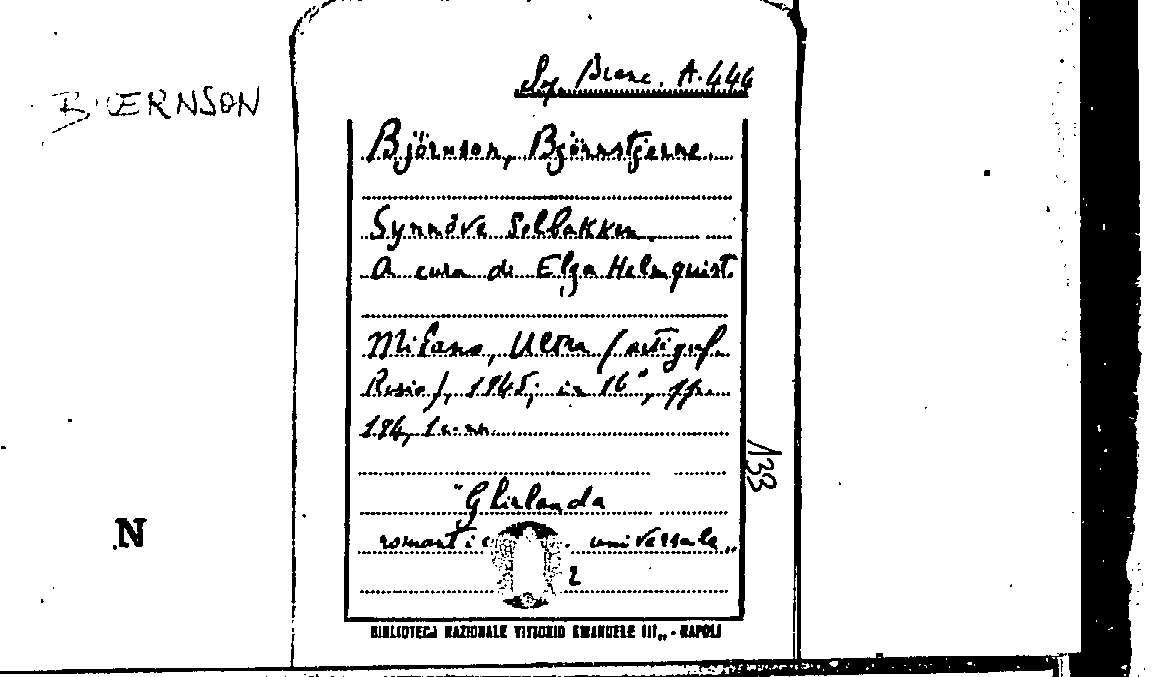 BJOERNSON
A. 444
Björnson, Björnstjerne
Synnöve Solbakken
A cura di Elga Holmquist.
Milano, Ultra (artigraf.
Rosio), 1945; in 16°, pp.
184, 1 c. nn.
"Ghirlanda
romantica universale„
2
133
N
BIBLIOTECA NAZIONALE VITTORIO EMANUELE III„ - NAPOLI